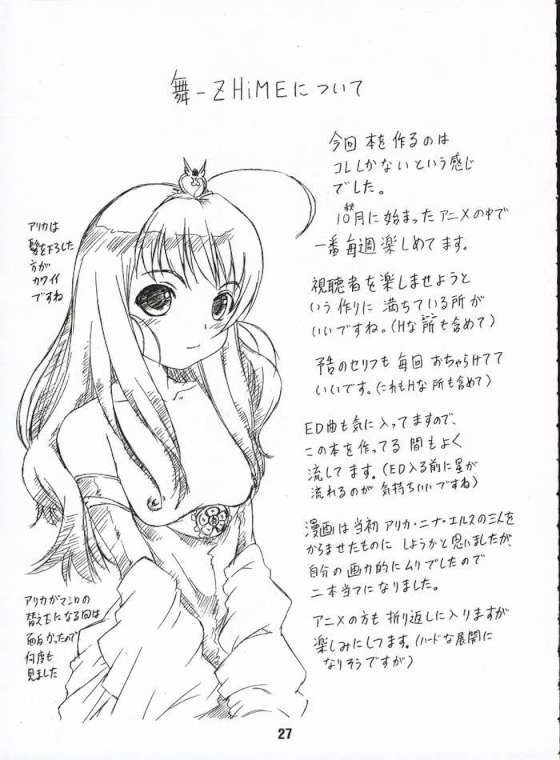 舞-ZHiMEについて
今回 本を作るのは
コレしかないという感じ
でした。
秋
10月に始まったアニメの中で
一番毎週楽しめてます。
視聴者を楽しませようと
いう作りに 満ちている所が
いいですね。(Hな所も含めて)
予告のセリフも毎回おちゃらけてて
いいです。(これもHな所も含めて)
ED曲も気に入ってますので、
この本を作ってる間もよく
流してます。(ED入る前に星が
流れるのが 気持ちいいですね)
漫画は当初 アリカ・ニナ・エルスの三人を
からませたものに しようかと思いましたが、
自分の画力的にムリでしたので
二本当てになりました。
アニメの方も 折り返しに入りますが
楽しみにしてます。(ハードな展開に
なりそうですが)
アリカは
髪を下ろした
方が
カワイイ
ですね
アリカがマシロの
替え玉になる回は
面白かったので
何度も
見ました
27